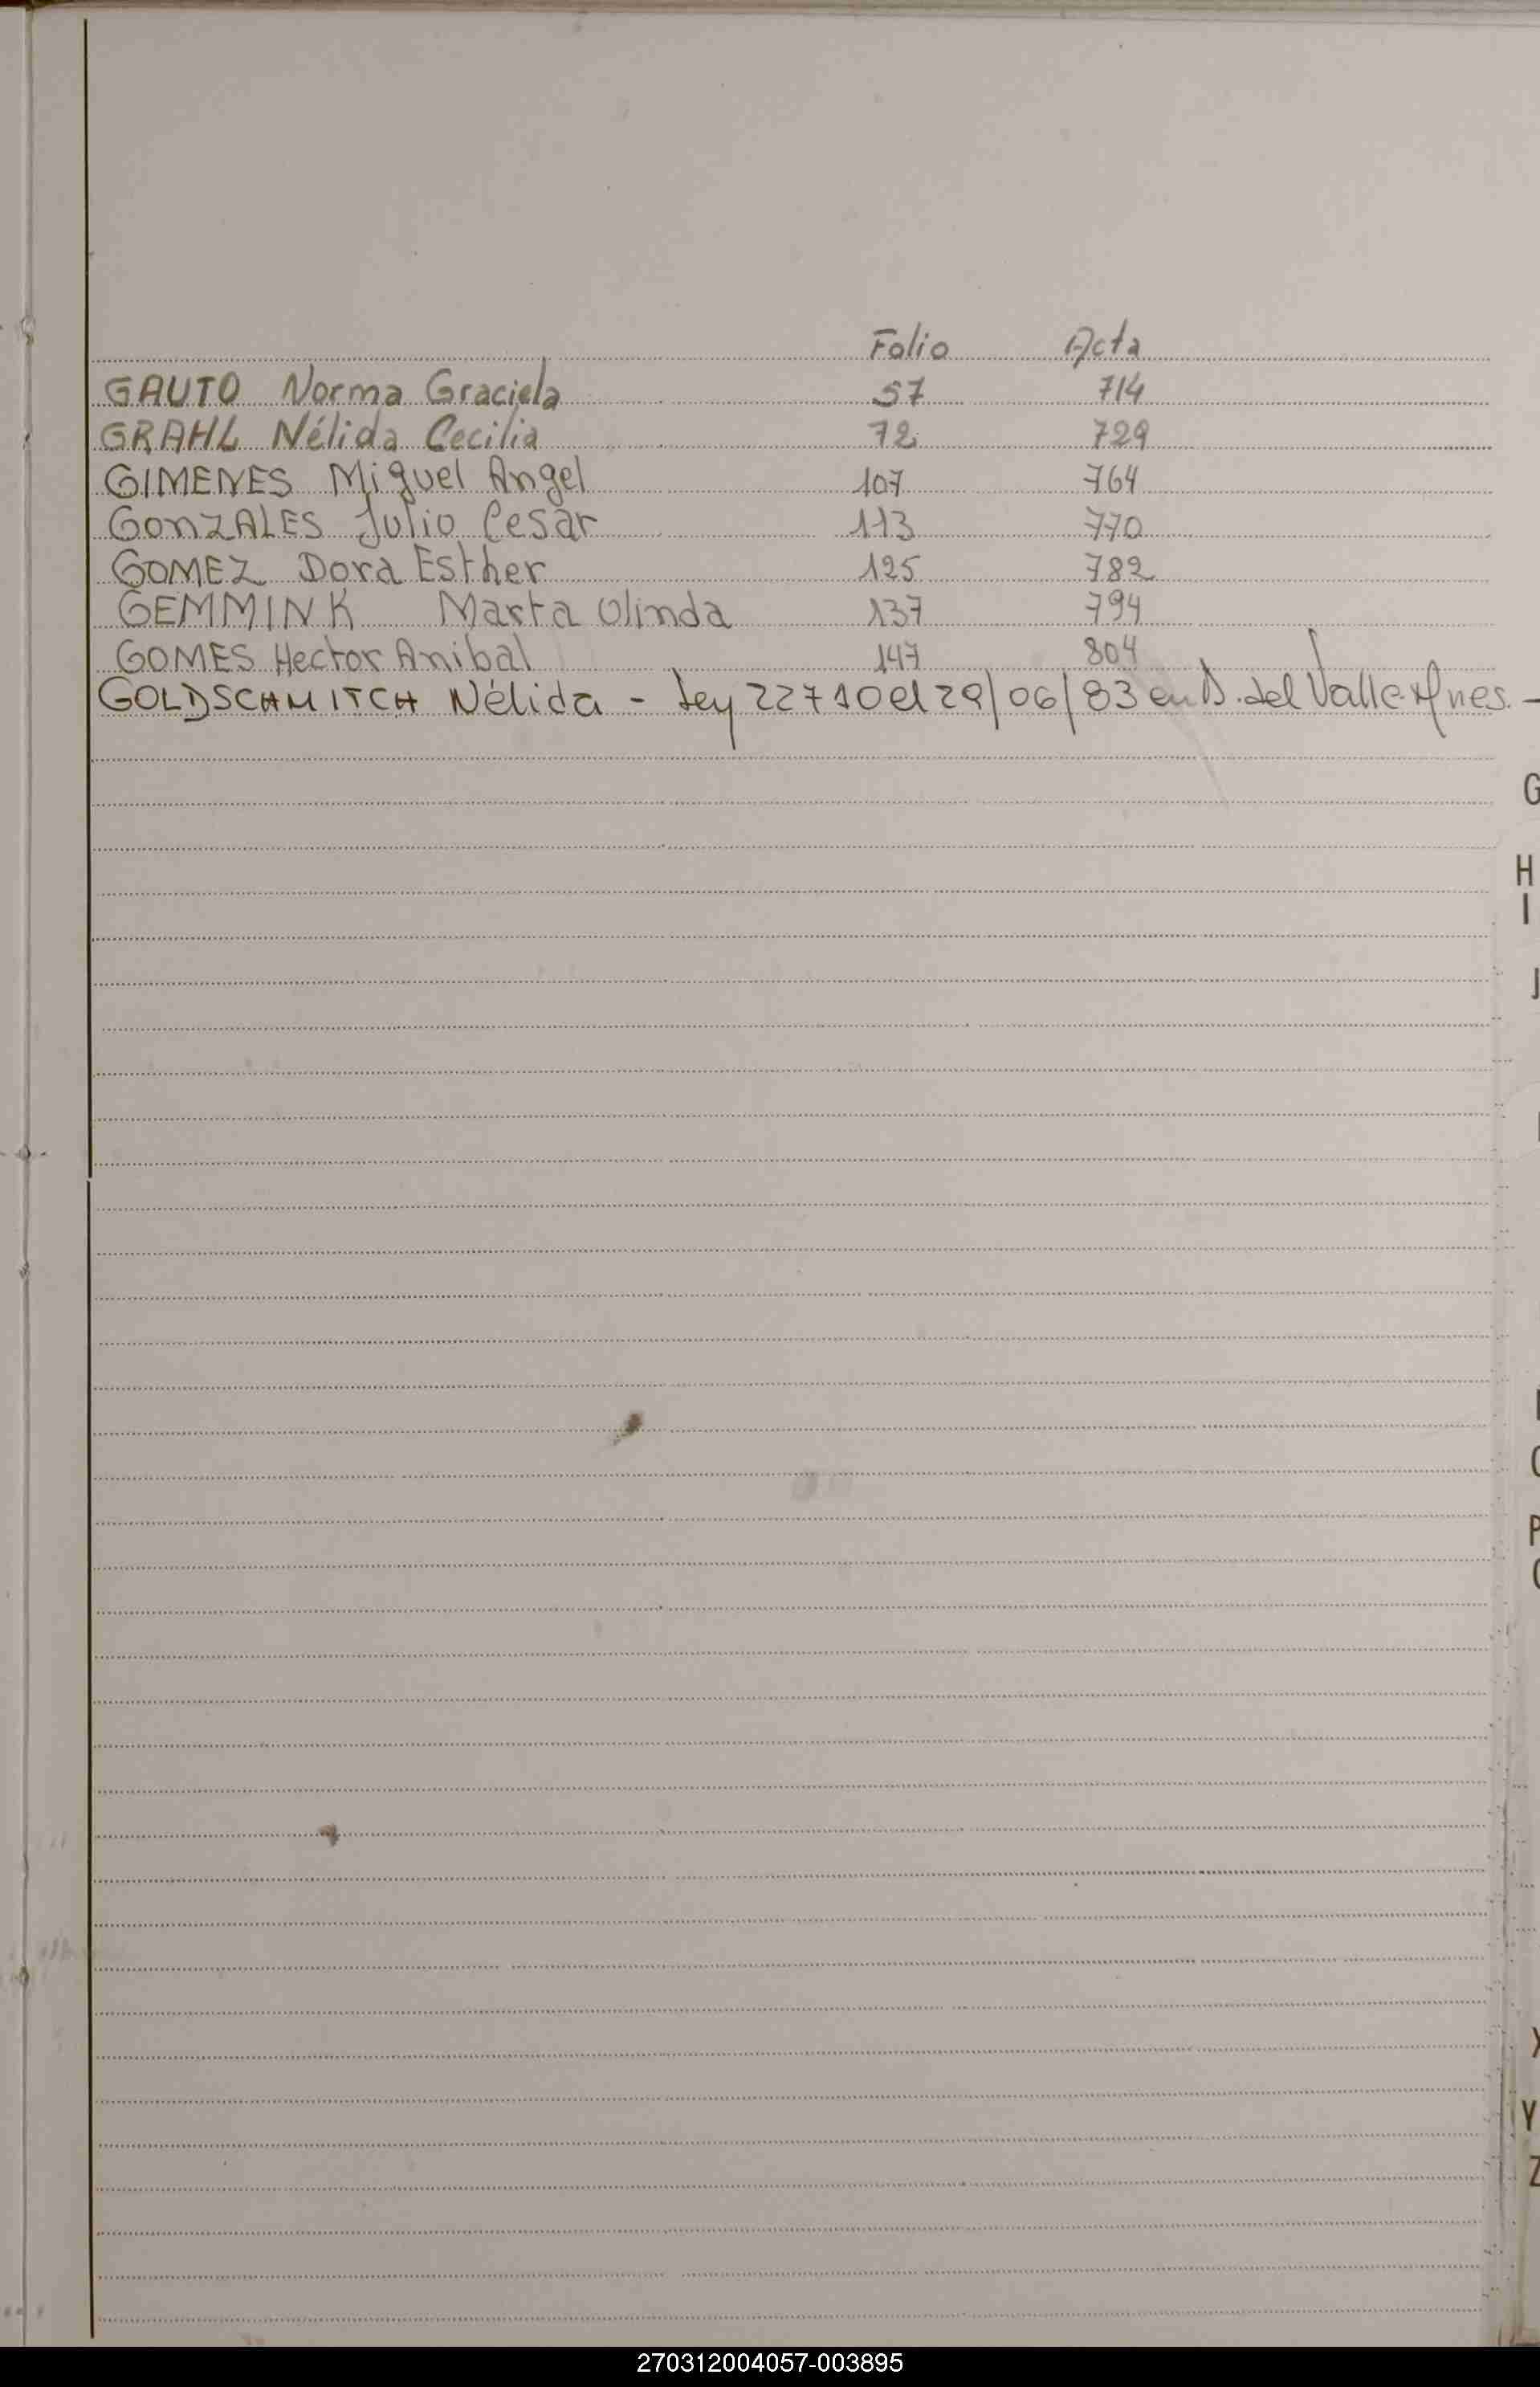 Folio Acta
GAUTO Norma Graciela 57 714
GRAHL Nélida Cecilia 72 729
GIMENES Miguel Angel 107 764
GONZALES Julio Cesar 113 770
GOMEZ Dora Esther 125 782
GEMMINK Marta Olinda 137 794
GOMES Hector Anibal 147 804
GOLDSCHMITCH Nélida - Ley 22710 el 29/06/83 en A. del Valle Mnes. -
G
H
I
J
P
Y
Z
270312004057-003895